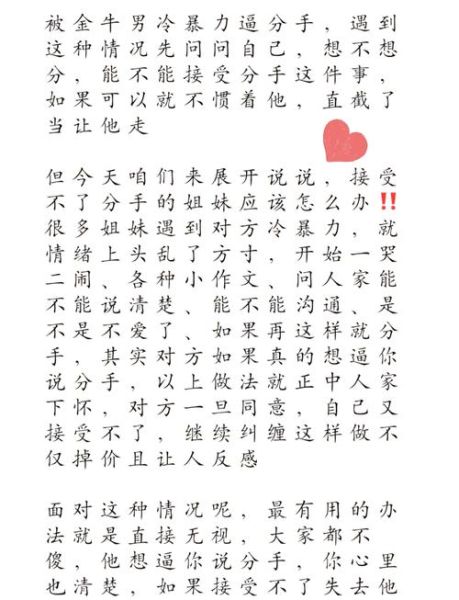 被金牛男冷暴力逼分手，遇到
这种情况先问问自己，想不想
分，能不能接受分手这件事，
如果可以就不惯着他，直截了
当让他走
但今天咱们来展开说说，接受
不了分手的姐妹应该怎么办‼️
很多姐妹遇到对方冷暴力，就
情绪上头乱了方寸，开始一哭
二闹、各种小作文、问人家能
不能说清楚、能不能沟通、是
不是不爱了、如果再这样就分
手，其实对方如果真的想逼你
说分手，以上做法就正中人家
下怀，对方一旦同意，自己又
接受不了，继续纠缠这样做不
仅掉价且让人反感
面对这种情况呢，最有用的办
法就是直接无视，大家都不
傻，他想逼你说分手，你心里
也清楚，如果接受不了失去他